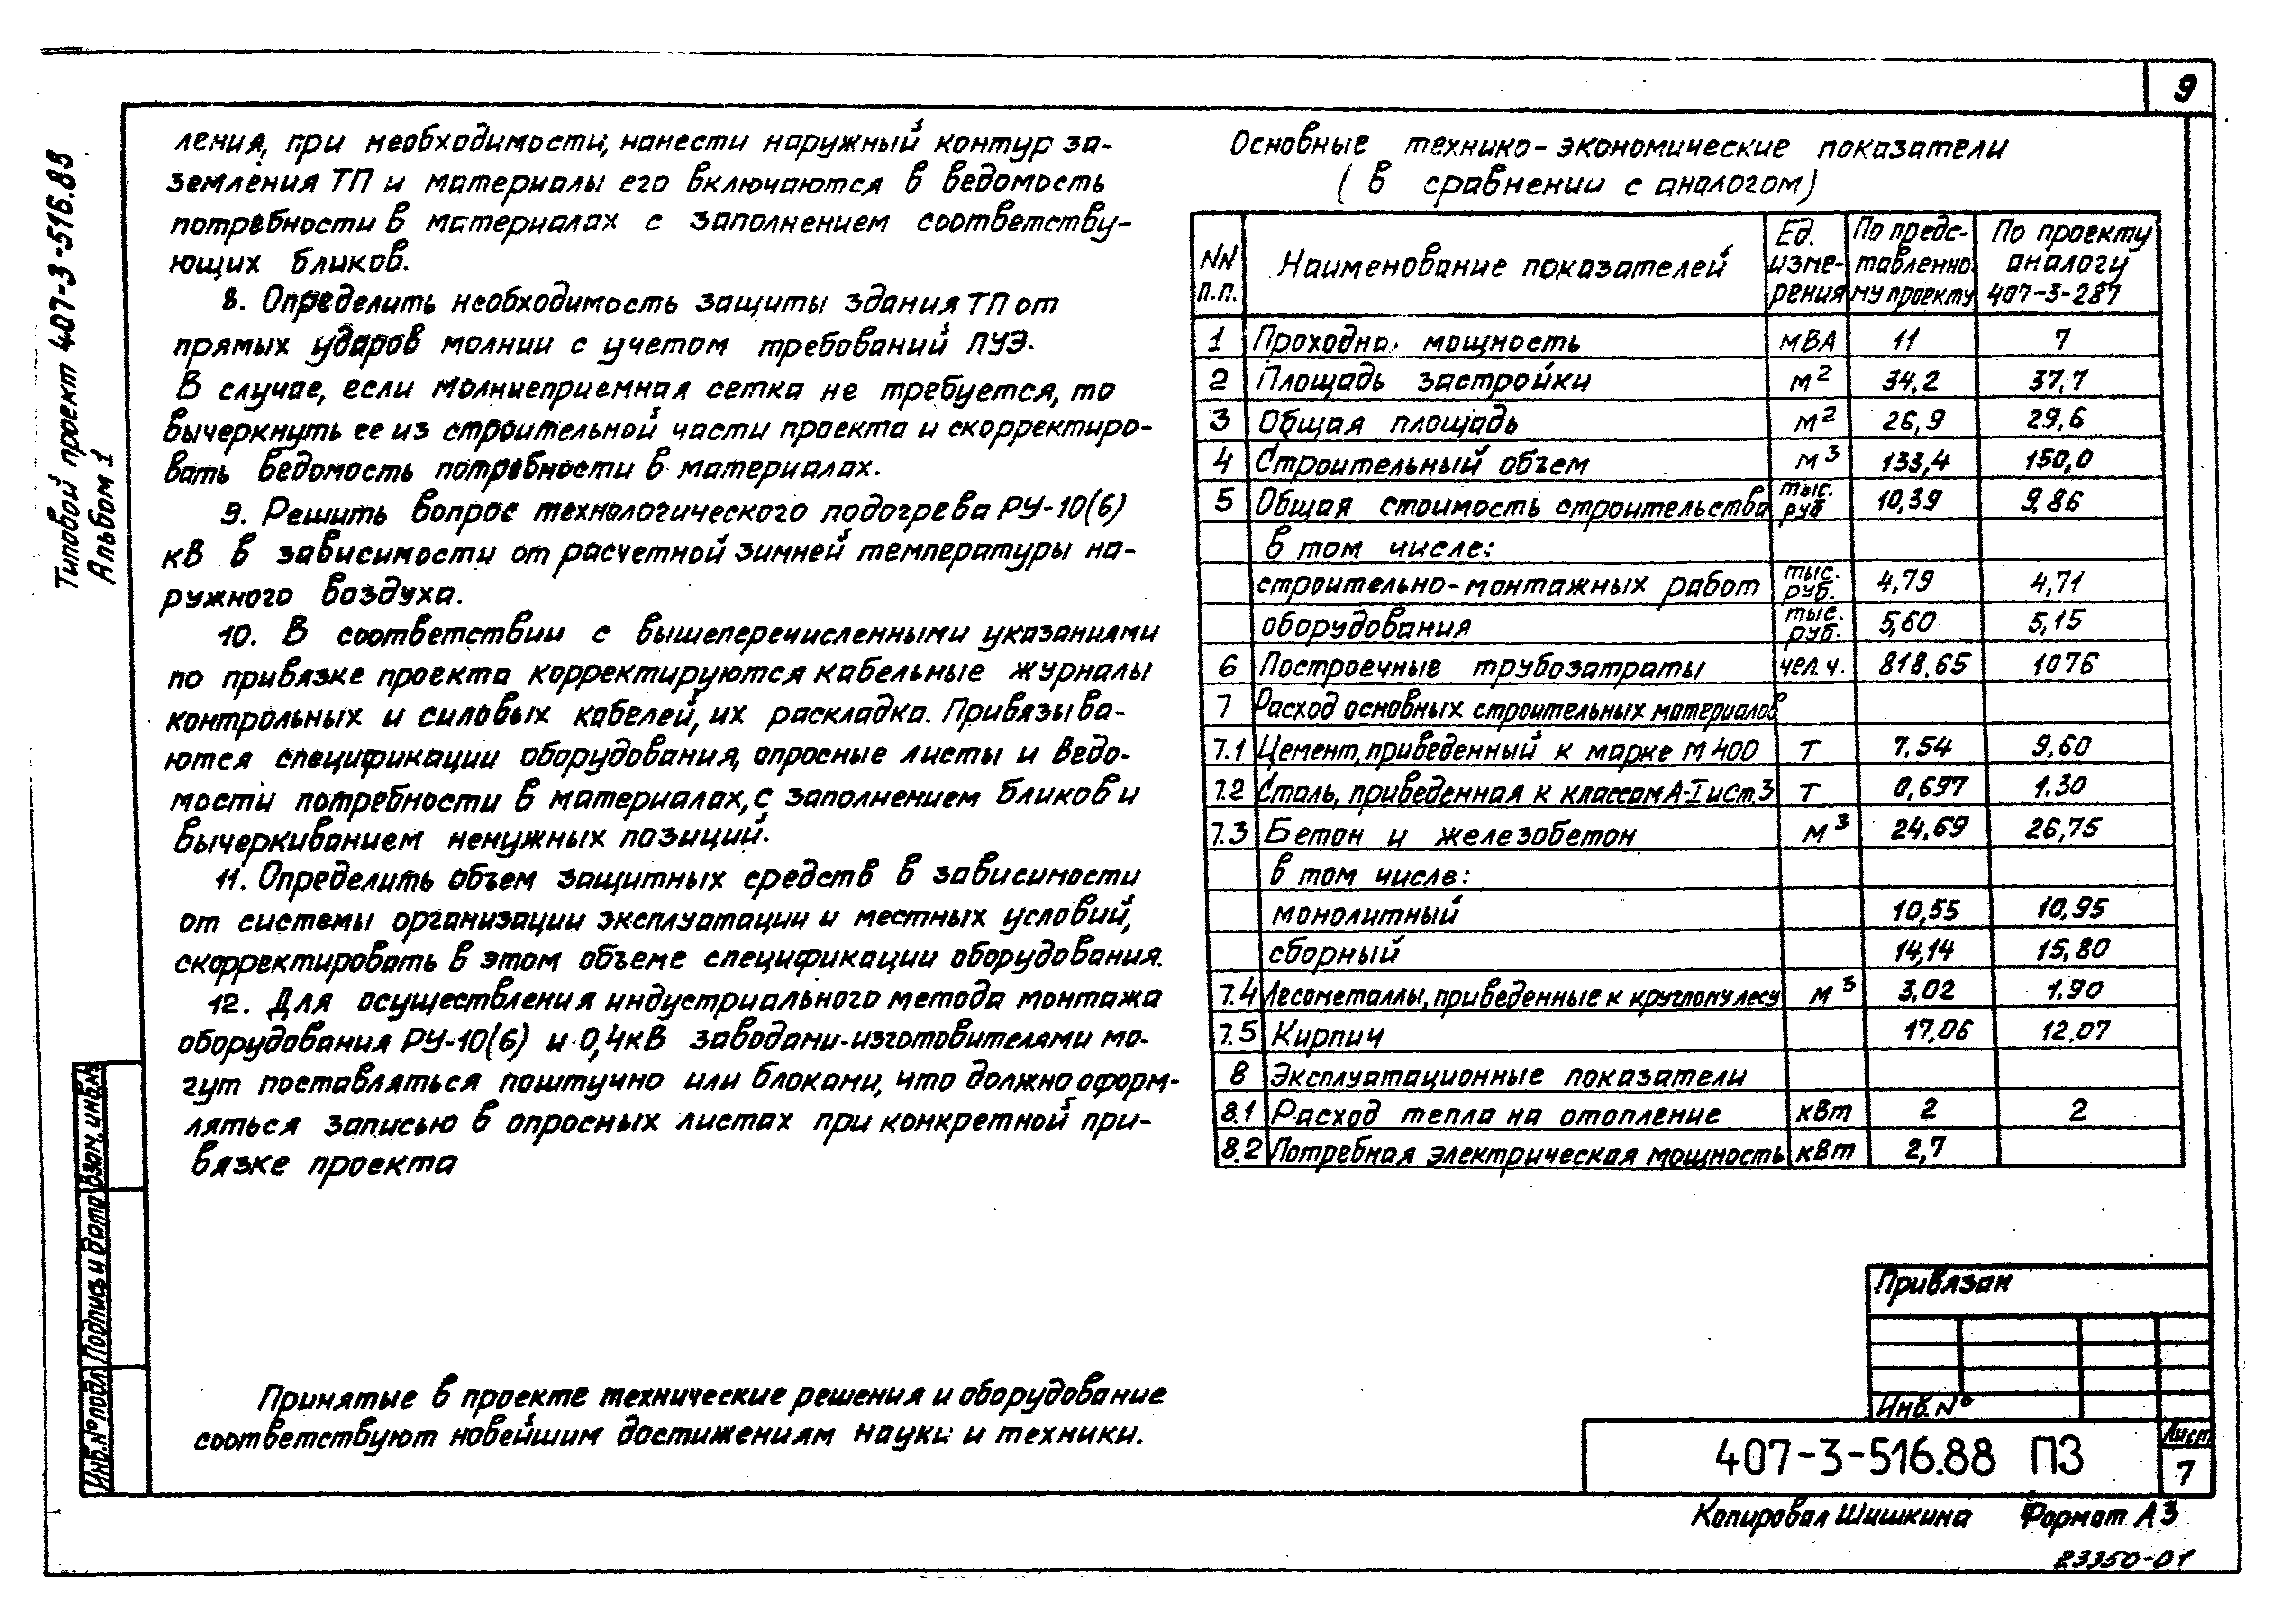 9
Типовой проект 407-3-516.88
Альбом 1
ления, при необходимости, нанести наружный контур за-
земления ТП и материалы его включаются в ведомость
потребности в материалах с заполнением соответству-
ющих бликов.
8. Определить необходимость защиты здания ТП от
прямых ударов молнии с учетом требований ПУЭ.
В случае, если молниеприемная сетка не требуется, то
вычеркнуть ее из строительной части проекта и скорректиро-
вать ведомость потребности в материалах.
9. Решить вопрос технологического подогрева РУ-10(6)
кВ в зависимости от расчетной зимней температуры на-
ружного воздуха.
10. В соответствии с вышеперечисленными указаниями
по привязке проекта корректируются кабельные журналы
контрольных и силовых кабелей, их раскладка. Привязыва-
ются спецификации оборудования, опросные листы и ведо-
мости потребности в материалах, с заполнением бликов и
вычеркиванием ненужных позиций.
11. Определить объем защитных средств в зависимости
от системы организации эксплуатации и местных условий,
скорректировать в этом объеме спецификации оборудования.
12. Для осуществления индустриального метода монтажа
оборудования РУ-10(6) и 0,4кВ заводами-изготовителями мо-
гут поставляться поштучно или блоками, что должно оформ-
ляться записью в опросных листах при конкретной при-
вязке проекта
Принятые в проекте технические решения и оборудование
соответствуют новейшим достижениям науки и техники.
Основные технико-экономические показатели
(в сравнении с аналогом)
NN п.п. Наименование показателей Ед. изме-рения По предс-тавленно-му проекту По проекту аналогу 407-3-287
1 Проходна. мощность МВА 11 7
2 Площадь застройки м² 34,2 37,7
3 Общая площадь м² 26,9 29,6
4 Строительный объем м³ 133,4 150,0
5 Общая стоимость строительства тыс. руб 10,39 9,86
в том числе:
строительно-монтажных работ тыс. руб. 4,79 4,71
оборудования тыс. руб. 5,60 5,15
6 Построечные трубозатраты чел.ч. 818.65 1076
7 Расход основных строительных материалов
7.1 Цемент, приведенный к марке М400 Т 7.54 9,60
7.2 Сталь, приведенная к классам А-I и Ст.3 Т 0,697 1.30
7.3 Бетон и железобетон м³ 24.69 26,75
в том числе:
монолитный 10,55 10.95
сборный 14,14 15.80
7.4 Лесометаллы, приведенные к круглому лесу м³ 3,02 1.90
7.5 Кирпич 17.06 12.07
8 Эксплуатационные показатели
8.1 Расход тепла на отопление кВт 2 2
8.2 Потребная электрическая мощность кВт 2,7
Привязан
Инв.№
407-3-516.88 ПЗ
Лист
7
Взам. инв.№
Подпись и дата
Инв.№ подл.
Копировал Шишкина Формат А3
23350-01